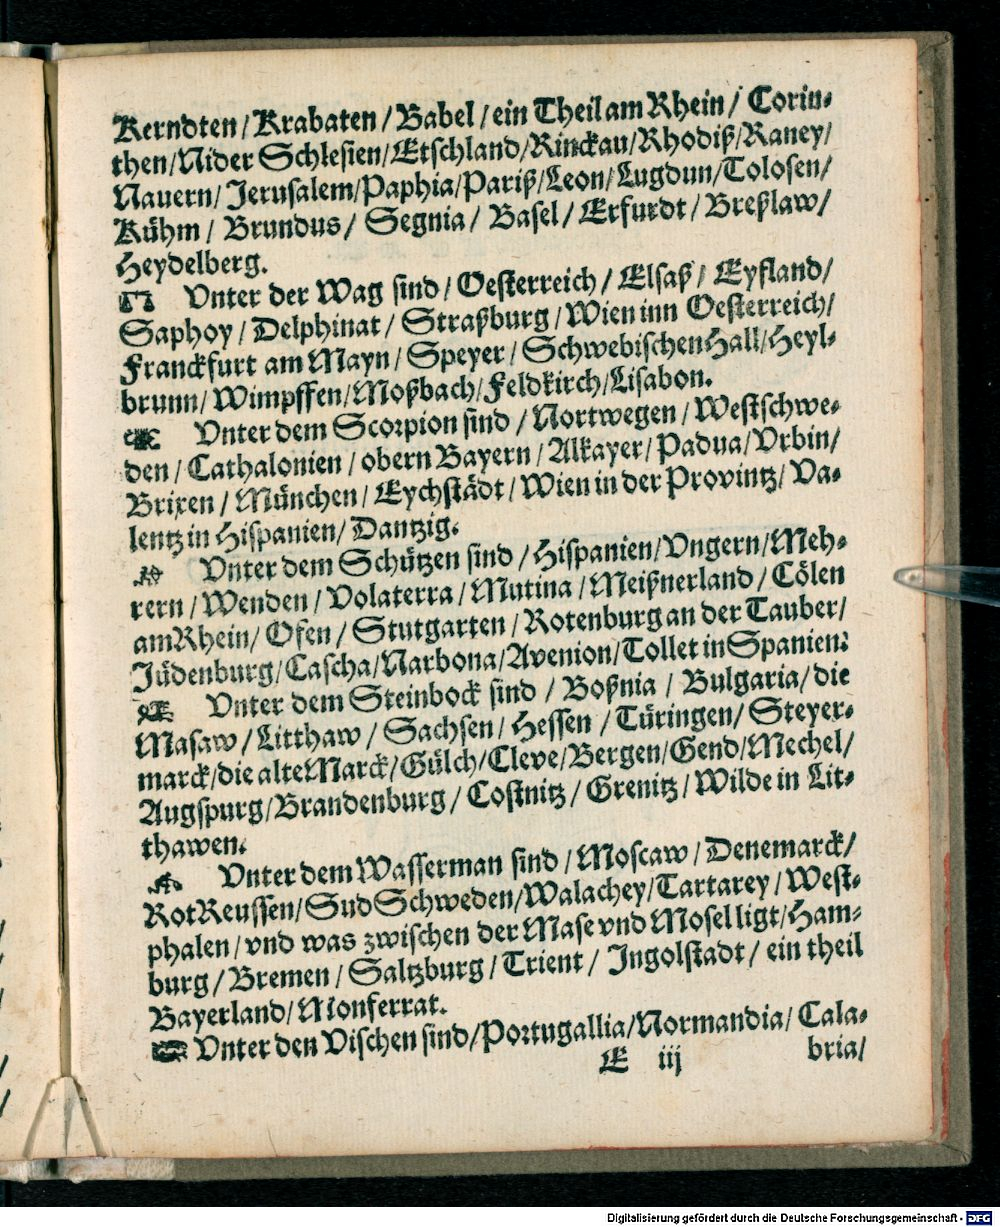 Kerndten / Krabaten / Babel / ein Theil am Rhein / Corin⸗
then / Nider Schlesien / Etschland / Rinckau / Rhodiß / Raney /
Nauern / Jerusalem / Paphia / Pariß / Leon / Lugdun / Tolosen /
Kühm / Brundus / Segnia / Basel / Erfurdt / Breßlaw /
Heydelberg.
Vnter der Wag sind / Oesterreich / Elsaß / Eyfland /
Saphoy / Delphinat / Straßburg / Wien inn Oesterreich /
Franckfurt am Mayn / Speyer / Schwebischen Hall / Heyl⸗
brunn / Wimpffen / Moßbach / Feldkirch / Lisabon.
Vnter dem Scorpion sind / Nortwegen / Westschwe⸗
den / Cathalonien / obern Bayern / Alkayer / Padua / Vrbin /
Brixen / München / Eychstädt / Wien in der Provintz / Va⸗
lentz in Hispanien / Dantzig.
Vnter dem Schützen sind / Hispanien / Vngern / Meh⸗
rern / Wenden / Volaterra / Mutina / Meißnerland / Cölen
am Rhein / Ofen / Stutgarten / Rotenburg an der Tauber /
Jüdenburg / Cascha / Narbona / Avenion / Tollet in Spanien.
Vnter dem Steinbock sind / Boßnia / Bulgaria / die
Masaw / Litthaw / Sachsen / Hessen / Türingen / Steyer⸗
marck / die alte Marck / Gülch / Cleve / Bergen / Gend / Mechel /
Augspurg / Brandenburg / Costnitz / Grenitz / Wilde in Lit⸗
thawen.
Vnter dem Wasserman sind / Moscaw / Denemarck /
Rot Reussen / Sud Schweden / Walachey / Tartarey / West⸗
phalen / vnd was zwischen der Mase vnd Mosel ligt / Ham⸗
burg / Bremen / Saltzburg / Trient / Ingolstadt / ein theil
Bayerland / Monferrat.
Vnter den Vischen sind / Portugallia / Normandia / Cala⸗
E iij bria /
Digitalisierung gefördert durch die Deutsche Forschungsgemeinschaft - DFG